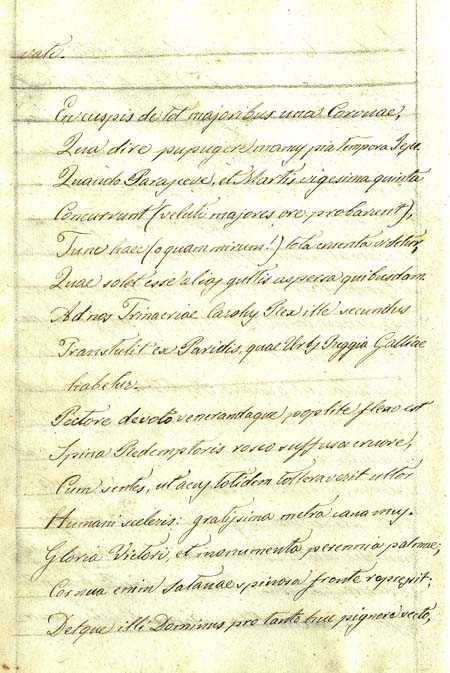 vati.
En cuspis de tot majoribus una Coronae,
Qua dire pupugere manus pia tempora Jesu
Quando Parasceve, et Martis vigesima quinta
Concurrunt (veluti majores ore probarunt),
Tunc haec (o quam mirum!) tota cruenta videtur,
Quae solet esse alias guttis aspersa quibusdam.
Ad nos Trinacriae Carolus Rex ille secundus
Transtulit ex Paridis, quae Urbs Reggia Galliae
habetur.
Pectore devoto venerandaque poplite flexo est
Spina Redemptoris roseo suffusa cruore,
Cum sentes, ut acus totidem tolleraverit ultor
Humani sceleris: gratissima metra canamus.
Gloria Victori, et monumenta perennia palmae,
Cornua enim Satanae spinosa fronte repressit;
Detque illi Dominus pro tanto huc pignore vecto,